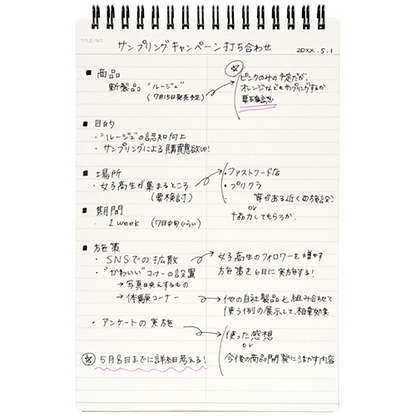 サンプリングキャンペーン打ち合わせ
20XX.5.1
■ 商品
新製品 "ルージュ"
(7月15日発売予定)
☆
ピンクのみの予定だが、
オレンジなどもサンプリングするか
要確認
■ 目的
・"ルージュ"の認知向上
・サンプリングによる購買意欲UP!
■ 場所
・女子高生が集まるところ
(要検討)
・ファストフード店
・プリクラ
等がある近くの施設?
or
協力してもらうか。
■ 期間
・1 week (7月中旬ぐらい)
■ 方策
・SNSでの拡散
女子高生のフォロワーを増やす
方策を6月に実施する!
・"かわいい"コーナーの設置
→写真映えするもの
→体験コーナー
他の自社製品と組み合わせて
使う例の展示して、相乗効果
・アンケートの実施
使った感想
or
今後の商品開発に活かす内容
☆ 5月8日までに詳細考える!